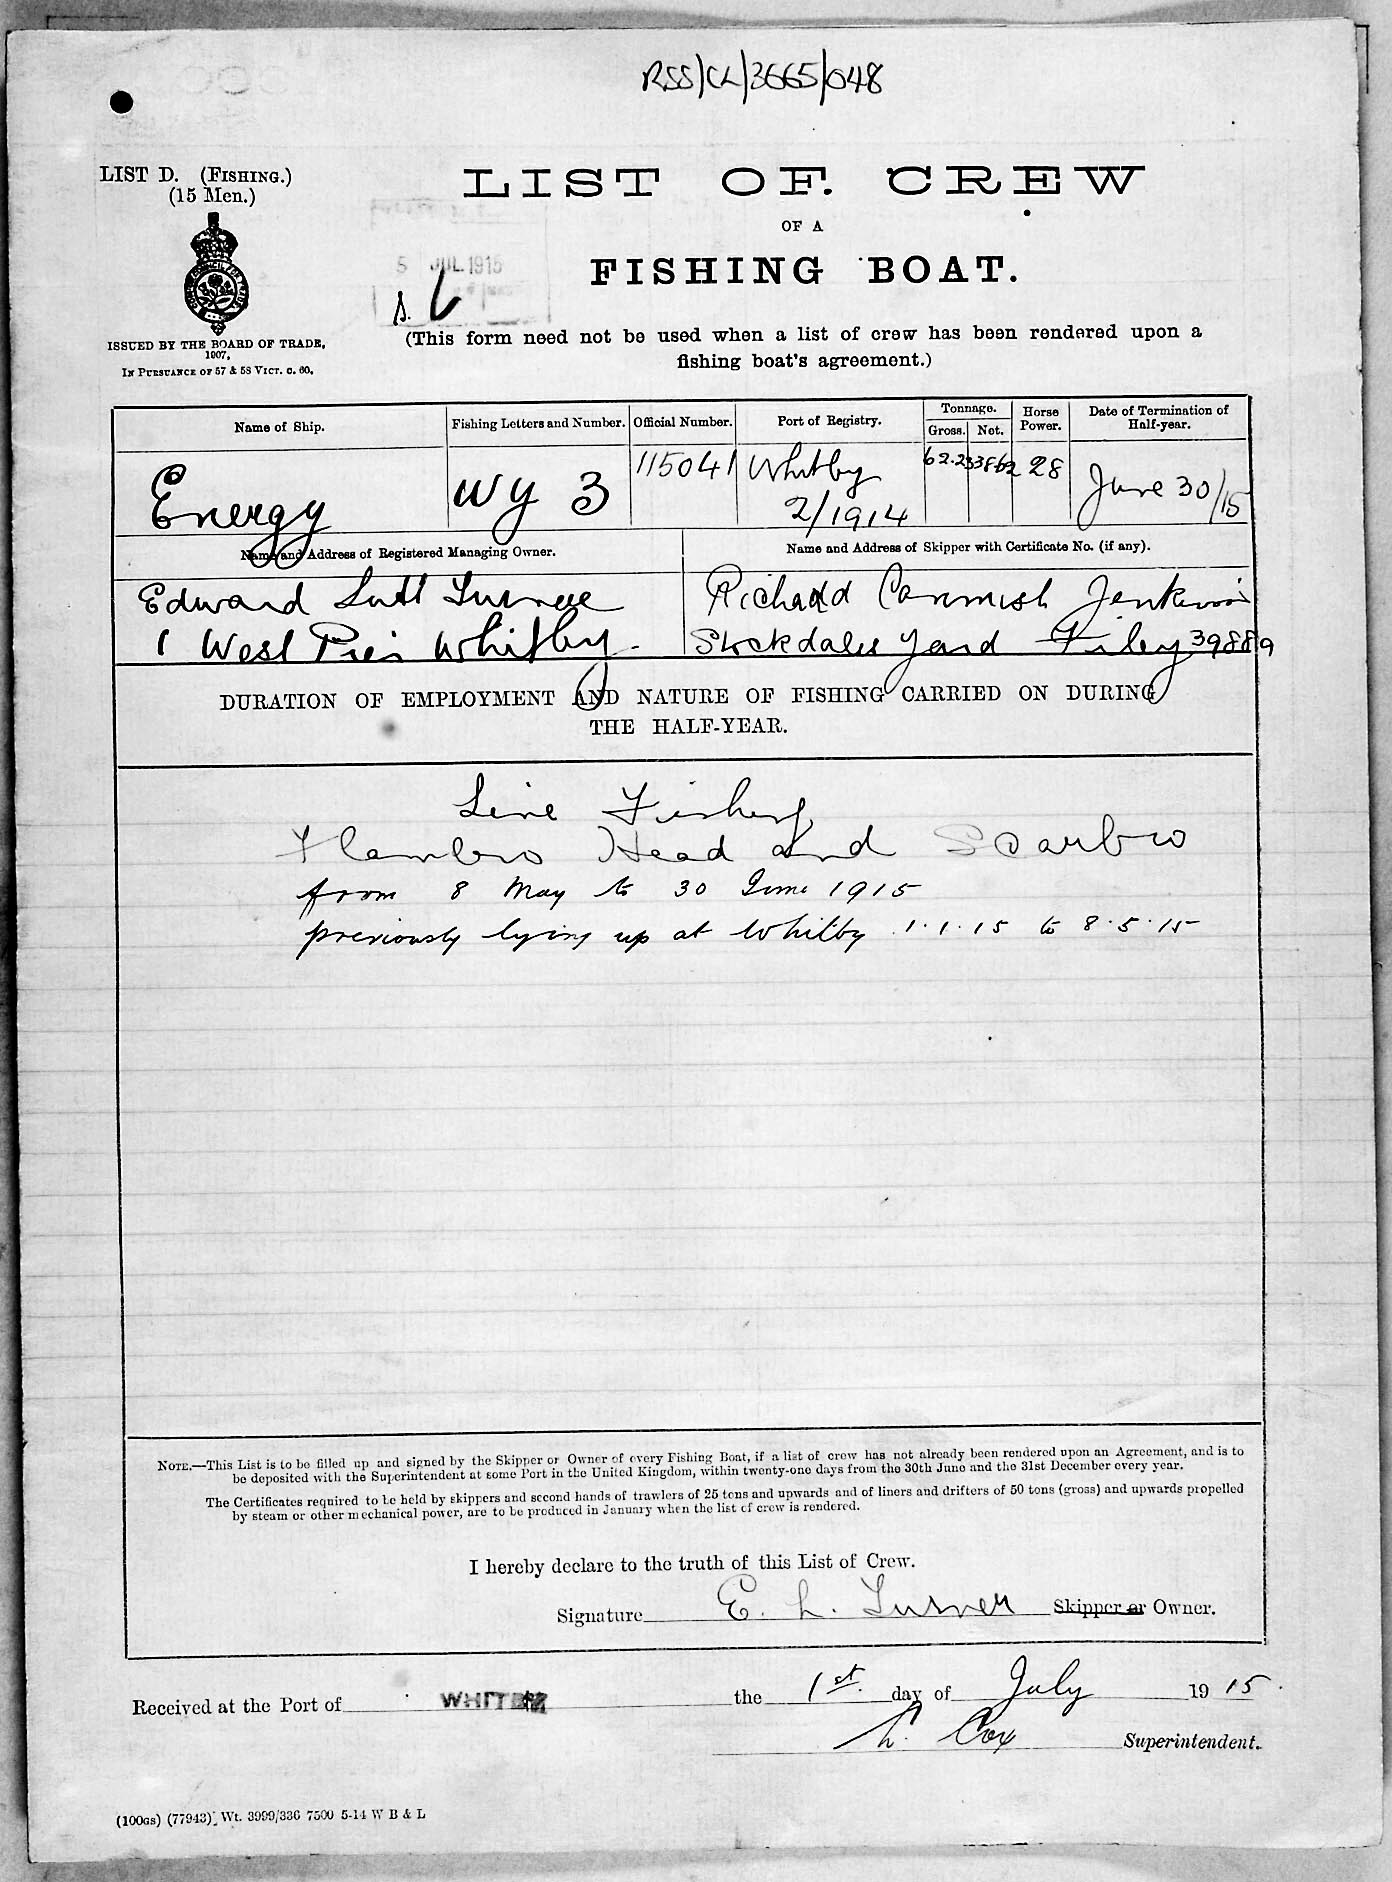 RSS/CL/3665/048
LIST D. (FISHING.)
(15 Men.)
LIST OF CREW
OF A
FISHING BOAT.
5 JUL 1915
ISSUED BY THE BOARD OF TRADE,
1907,
IN PURSUANCE OF 57 & 58 VICT. C. 60.
(This form need not be used when a list of crew has been rendered upon a
fishing boat's agreement.)
Name of Ship. Fishing Letters and Number. Official Number. Port of Registry. Tonnage. Gross. Net. Horse Power. Date of Termination of Half-year.
Energy WY 3 115041 Whitby 2/1914 62.23 38.62 28 June 30/15
Name and Address of Registered Managing Owner. Name and Address of Skipper with Certificate No. (if any).
Edward Turner Richard Cammish Jenkinson
1 West Pier Whitby. Stockdales Yard Filey 39889
DURATION OF EMPLOYMENT AND NATURE OF FISHING CARRIED ON DURING
THE HALF-YEAR.
Line Fishing
Flambro Head and Scarbro
from 8 May to 30 June 1915
previously lying up at Whitby 1.1.15 to 8.5.15
NOTE.—This List is to be filled up and signed by the Skipper or Owner of every Fishing Boat, if a list of crew has not already been rendered upon an Agreement, and is to
be deposited with the Superintendent at some Port in the United Kingdom, within twenty-one days from the 30th June and the 31st December every year.
The Certificates required to be held by skippers and second hands of trawlers of 25 tons and upwards and of liners and drifters of 50 tons (gross) and upwards propelled
by steam or other mechanical power, are to be produced in January when the list of crew is rendered.
I hereby declare to the truth of this List of Crew.
Signature E. L. Turner Skipper or Owner.
Received at the Port of WHITBY the 1st. day of July 1915.
Cox Superintendent.
(100GS) (77943). Wt. 3999/336 7500 5-14 W B & L